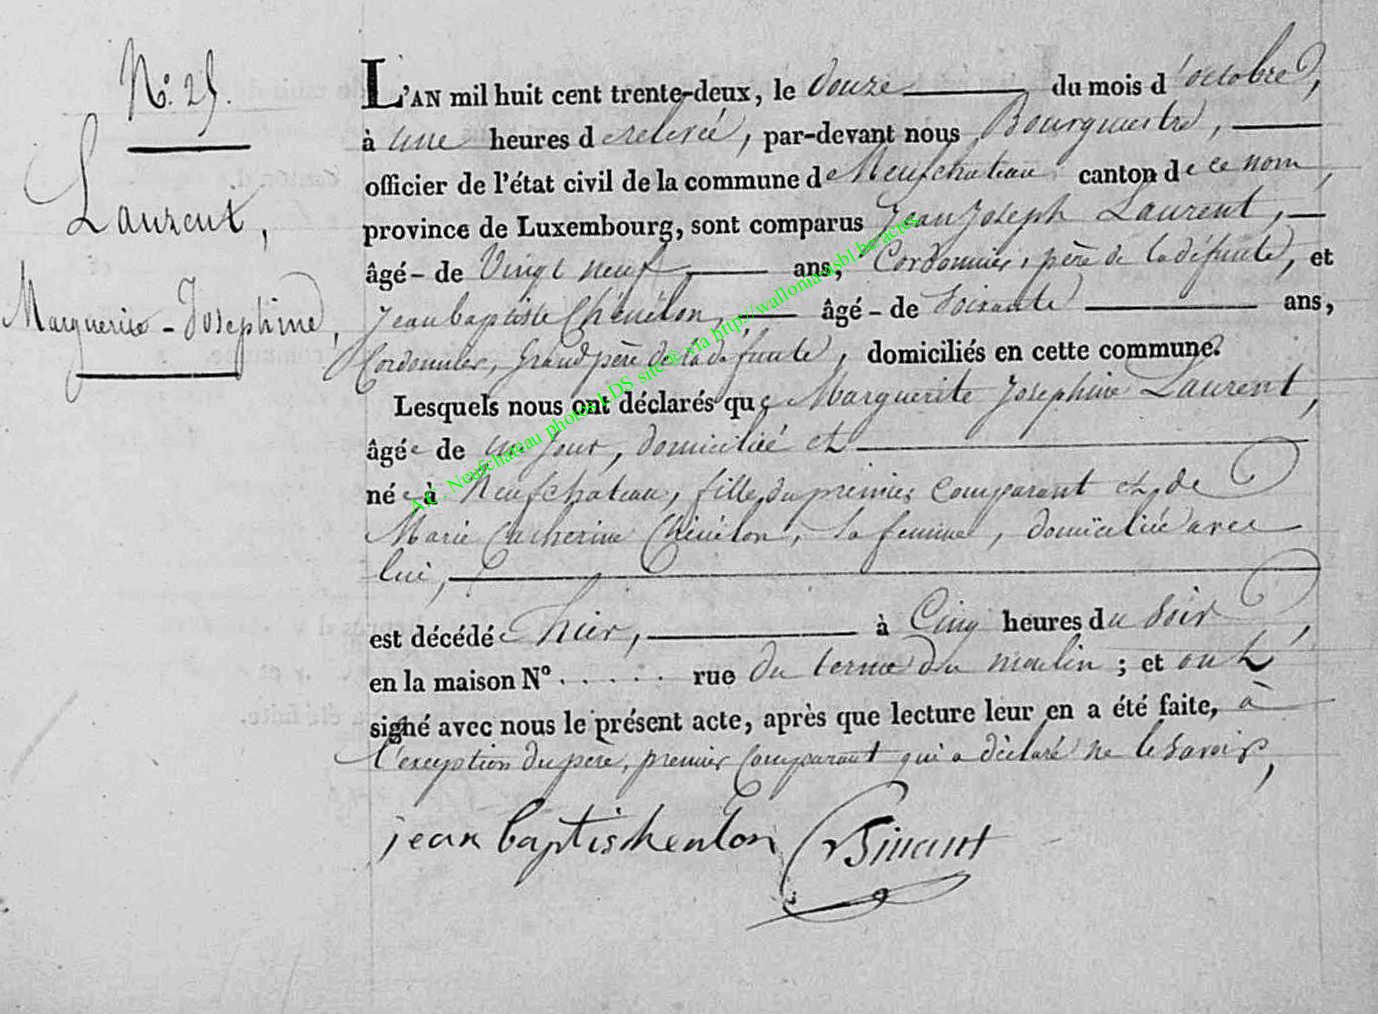 N.º 25.
Laurent,
Marguerite-Josephine,
L'AN mil huit cent trente-deux, le douze du mois d'octobre,
à une heures de relevée, par-devant nous Bourgmestre,
officier de l'état civil de la commune de Neufchateau canton de ce nom,
province de Luxembourg, sont comparus Jean Joseph Laurent,
âgé - de Vingt neuf ans, Cordonnier, père de la défunte, et
Jean baptiste Chénélon, âgé - de soixante ans,
Cordonnier, grand père de la défunte, domiciliés en cette commune.
Lesquels nous ont déclarés que Marguerite Josephine Laurent,
âgée de un jour, domiciliée et
née à Neufchateau, fille du premier comparant et de
Marie Catherine Chénélon, sa femme, domiciliée avec
lui,
est décédée hier, à Cinq heures du soir,
en la maison Nº . . . . . rue du terme du moulin ; et ont
signé avec nous le présent acte, après que lecture leur en a été faite, à
l'exception du père, premier comparant qui a déclaré ne le savoir,
jean baptis henlon
A.E. Neufchateau photos LDS site @ via http://wallonia-asbl.be/actes